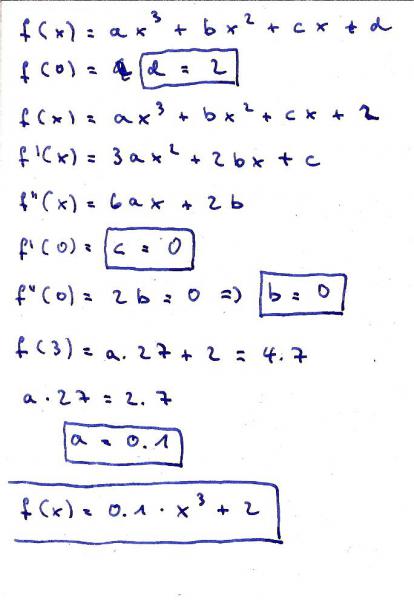 f(x) = ax³ + bx² + cx + d
f(0) = d = 2
f(x) = ax³ + bx² + cx + 2
f'(x) = 3ax² + 2bx + c
f"(x) = 6ax + 2b
f'(0) = c = 0
f"(0) = 2b = 0 => b = 0
f(3) = a.27 + 2 = 4.7
a.27 = 2.7
a = 0.1
f(x) = 0.1 · x³ + 2